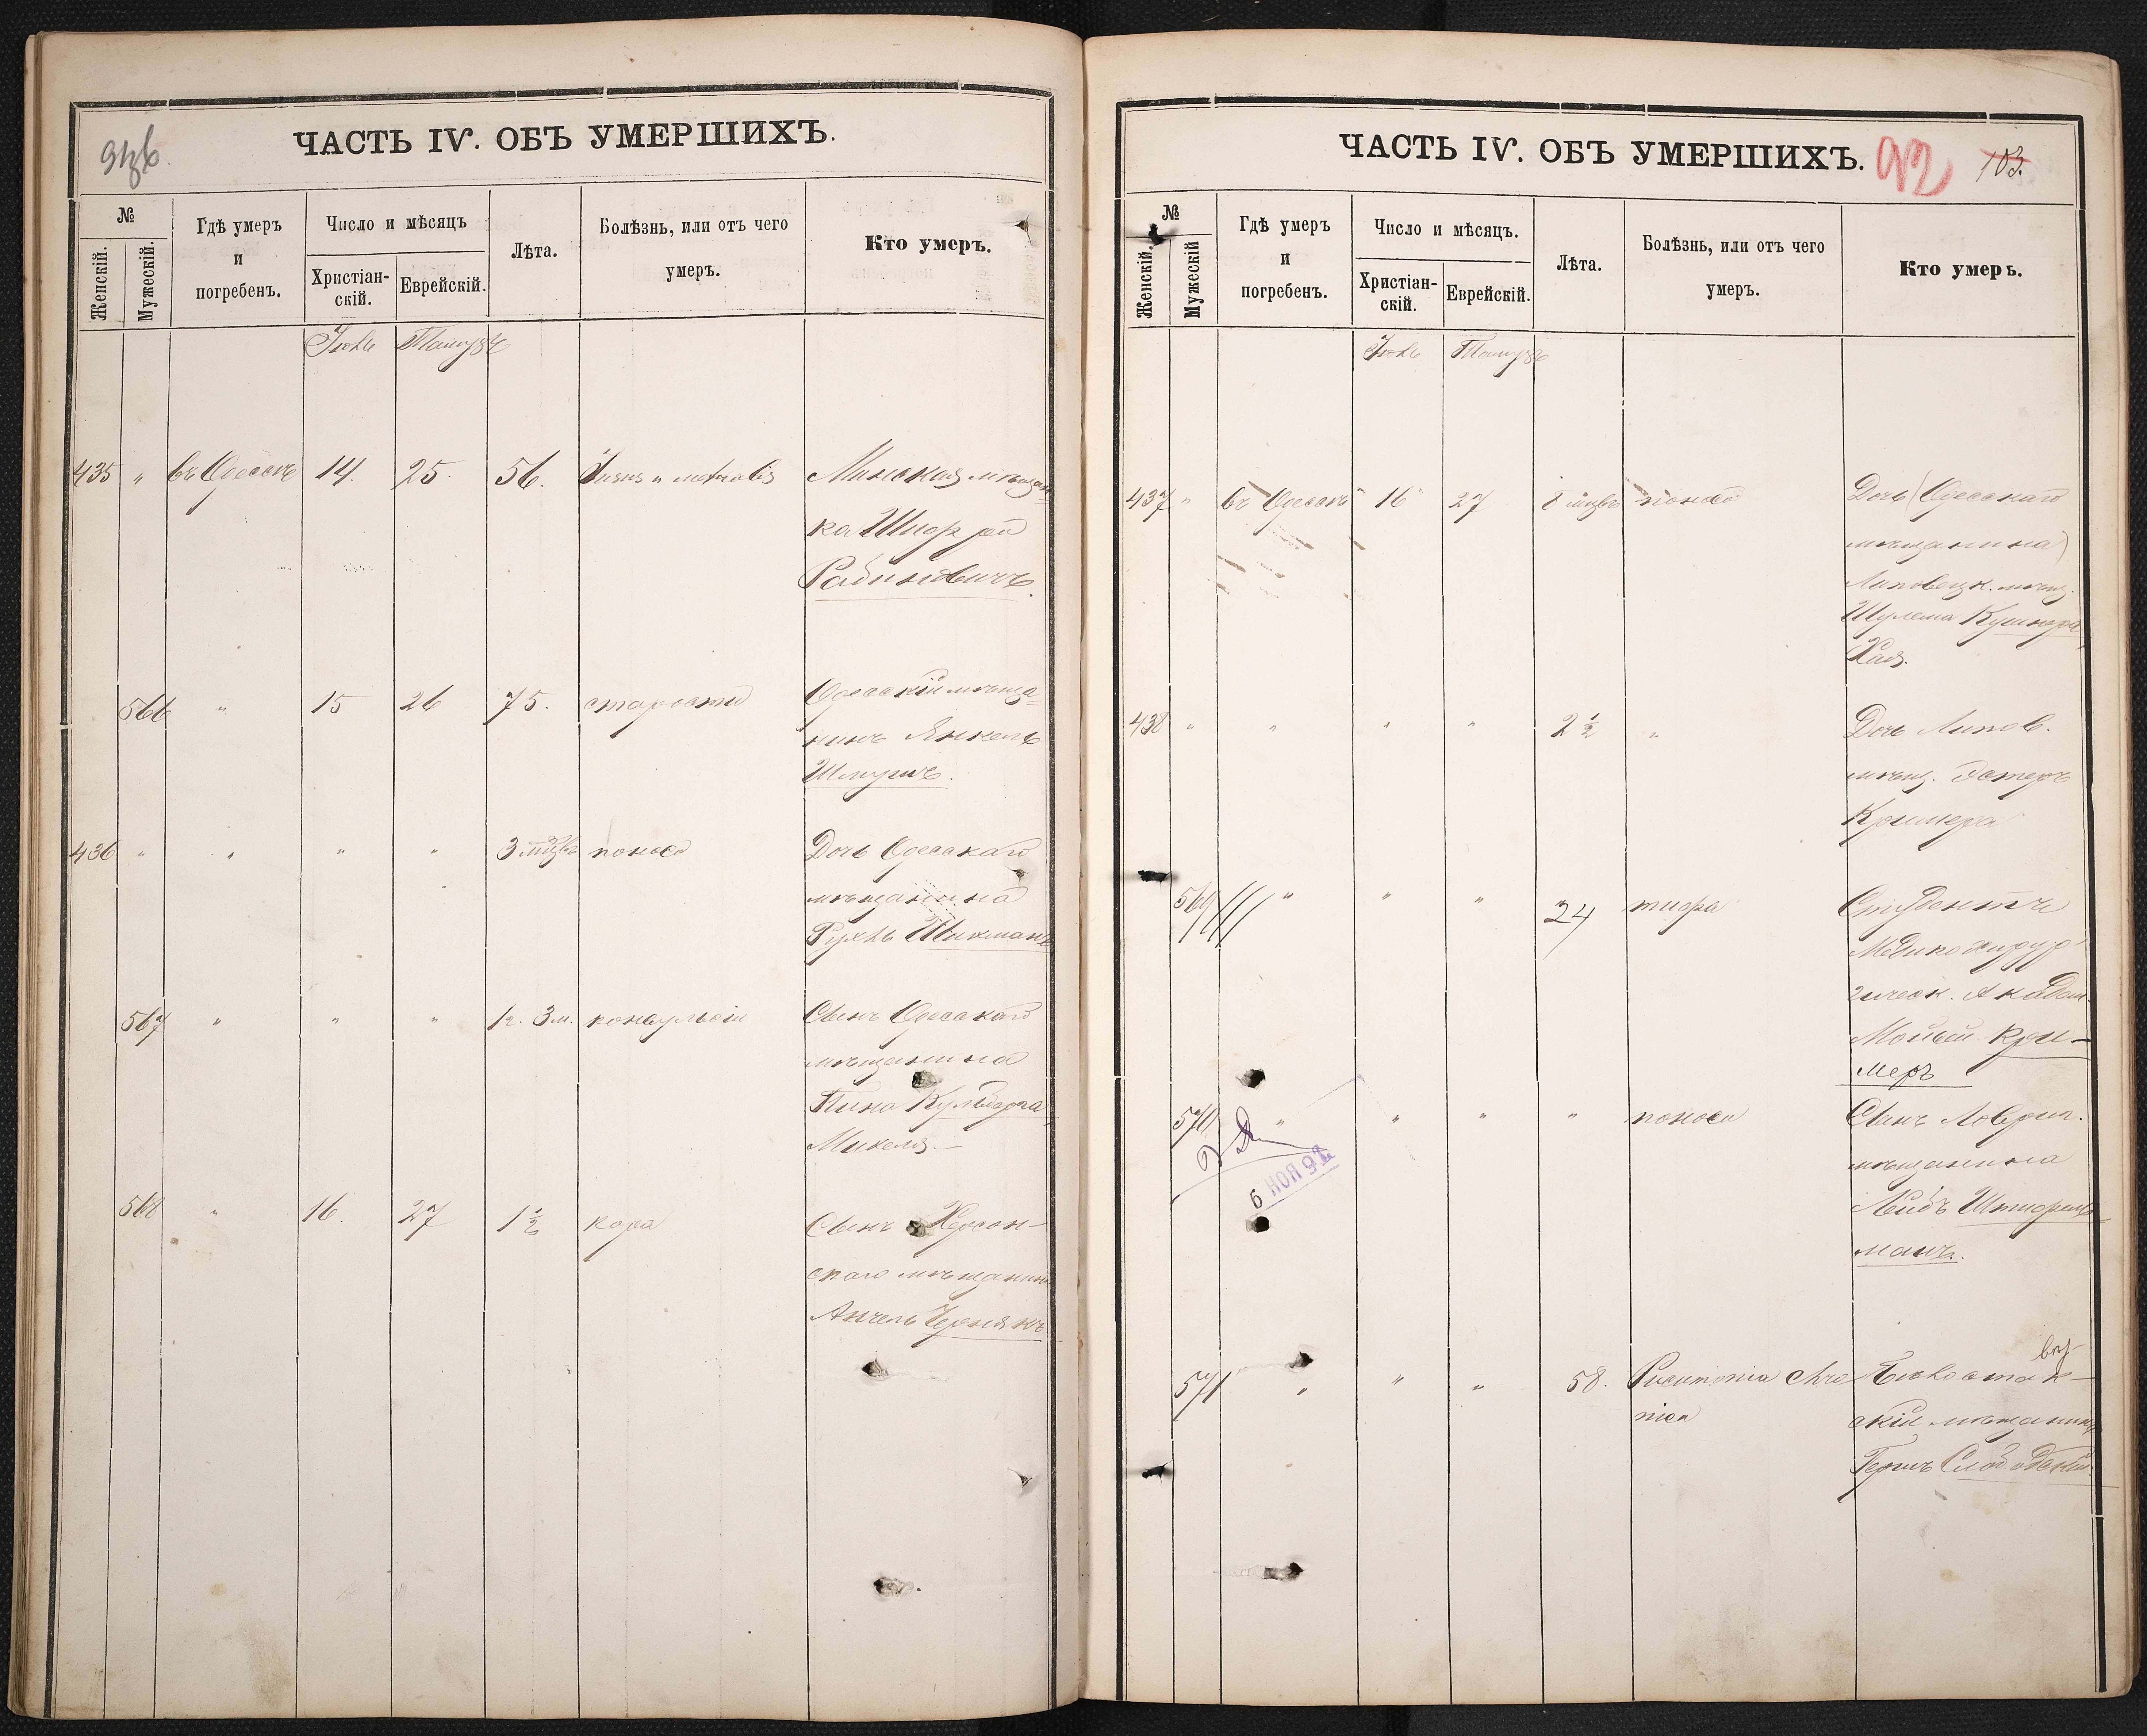 ЧАСТЬ IV. ОБЪ УМЕРШИХЪ.
№
Женскій.
Мужескій.
Гдѣ умеръ
и
погребенъ.
Число и мѣсяцъ
Христіан-
скій.
Еврейскій.
Лѣта.
Болѣзнь, или отъ чего
умеръ.
Кто умеръ.
Іюль Тамузъ
435 " въ Одессѣ 14. 25. 56. Минская мѣщан=
ка
Рабиновичъ.
566 " 15 26 75. старости Одесскій мѣща=
нинъ Янкель
436 " " " " 3 мѣс поноса Дочь Одесскаго
мѣщанина
Рухль Шикманъ
567 " " " 1 г. 3 м. конвульсіи Сынъ Одесскаго
мѣщанина
Михель. —
568 " 16. 27 1 ½ кора Сынъ Херсон-
скаго мѣщанина
Анчель Чернякъ
ЧАСТЬ IV. ОБЪ УМЕРШИХЪ.
92 103.
№
Женскій.
Мужескій
Гдѣ умеръ
и
погребенъ.
Число и мѣсяцъ.
Христіан-
скій.
Еврейскій.
Лѣта.
Болѣзнь, или отъ чего
умеръ.
Кто умеръ.
Іюль Тамузъ
437 " въ Одессѣ 16 27 8 мѣс поноса Дочь (Одесскаго
мѣщанина)
Липовецк. мѣщ.
Шулема Кушнера,
Хая.
438 " " " " 2 ½ " Дочь Липов.
мѣщ. Эстеръ
Кримера
569 " " " 24 тифа Студентъ
Медикохирур-
гическ. Академ.
Мойсей Кри-
меръ
570 " " " " поноса Сынъ
мѣщанина
Лейбъ
манъ.
6 НОЯ 92
571 " " " 58. Pneumonia chro
nica
скій мѣщанинъ
Гершъ